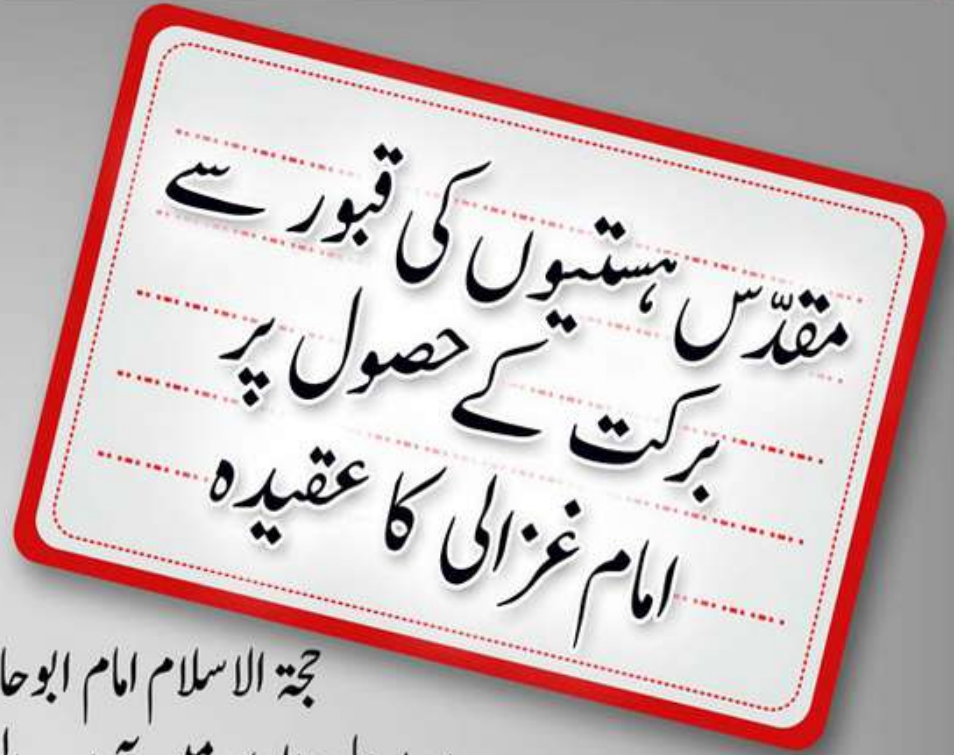 مقدّس ہستیوں کی قبور سے
برکت کے حصول پر
امام غزالی کا عقیدہ
حجۃ الاسلام امام ابوحا